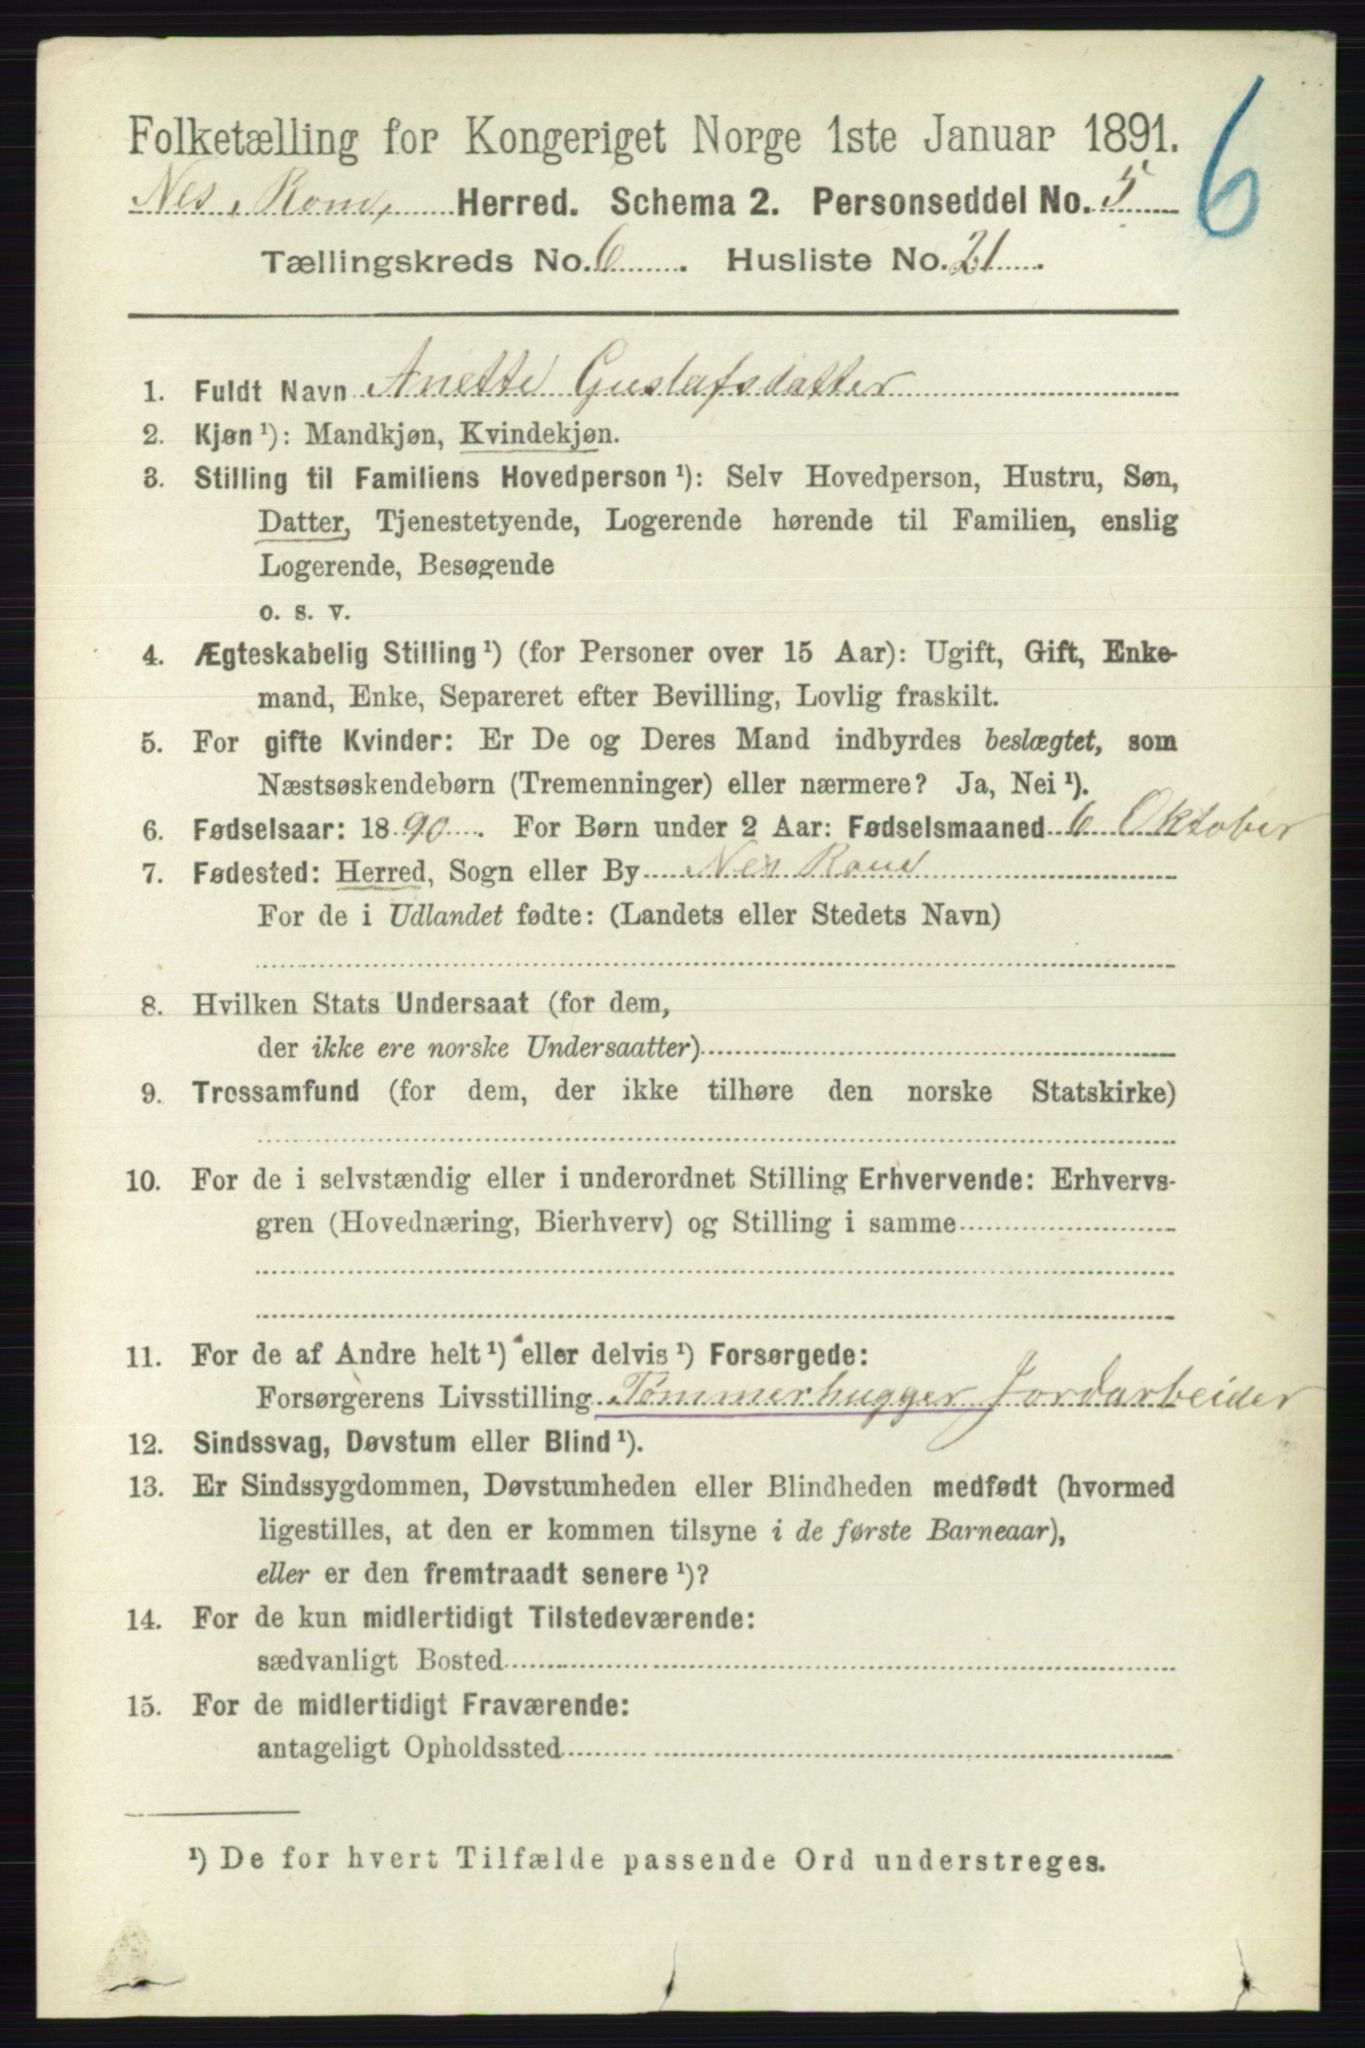 6
Folketælling for Kongeriget Norge 1ste Januar 1891.
Nes, Rom, Herred. Schema 2. Personseddel No. 5
Tællingskreds No. 6 . Husliste No. 21 .
1. Fuldt Navn Anette Gustafsdatter
2. Kjøn¹): Mandkjøn, Kvindekjøn.
3. Stilling til Familiens Hovedperson¹): Selv Hovedperson, Hustru, Søn,
Datter, Tjenestetyende, Logerende hørende til Familien, enslig
Logerende, Besøgende
o. s. v.
4. Ægteskabelig Stilling¹) (for Personer over 15 Aar): Ugift, Gift, Enke-
mand, Enke, Separeret efter Bevilling, Lovlig fraskilt.
5. For gifte Kvinder: Er De og Deres Mand indbyrdes beslægtet, som
Næstsøskendebørn (Tremenninger) eller nærmere? Ja, Nei¹).
6. Fødselsaar: 1890 . For Børn under 2 Aar: Fødselsmaaned 6 Oktober
7. Fødested: Herred, Sogn eller By Nes Rom
For de i Udlandet fødte: (Landets eller Stedets Navn)
8. Hvilken Stats Undersaat (for dem,
der ikke ere norske Undersaatter)
9. Trossamfund (for dem, der ikke tilhøre den norske Statskirke)
10. For de i selvstændig eller i underordnet Stilling Erhvervende: Erhvervs-
gren (Hovednæring, Bierhverv) og Stilling i samme
11. For de af Andre helt¹) eller delvis¹) Forsørgede:
Forsørgerens Livsstilling Tømmerhugger Jordarbeider
12. Sindssvag, Døvstum eller Blind¹).
13. Er Sindssygdommen, Døvstumheden eller Blindheden medfødt (hvormed
ligestilles, at den er kommen tilsyne i de første Barneaar),
eller er den fremtraadt senere¹)?
14. For de kun midlertidigt Tilstedeværende:
sædvanligt Bosted
15. For de midlertidigt Fraværende:
antageligt Opholdssted
¹) De for hvert Tilfælde passende Ord understreges.